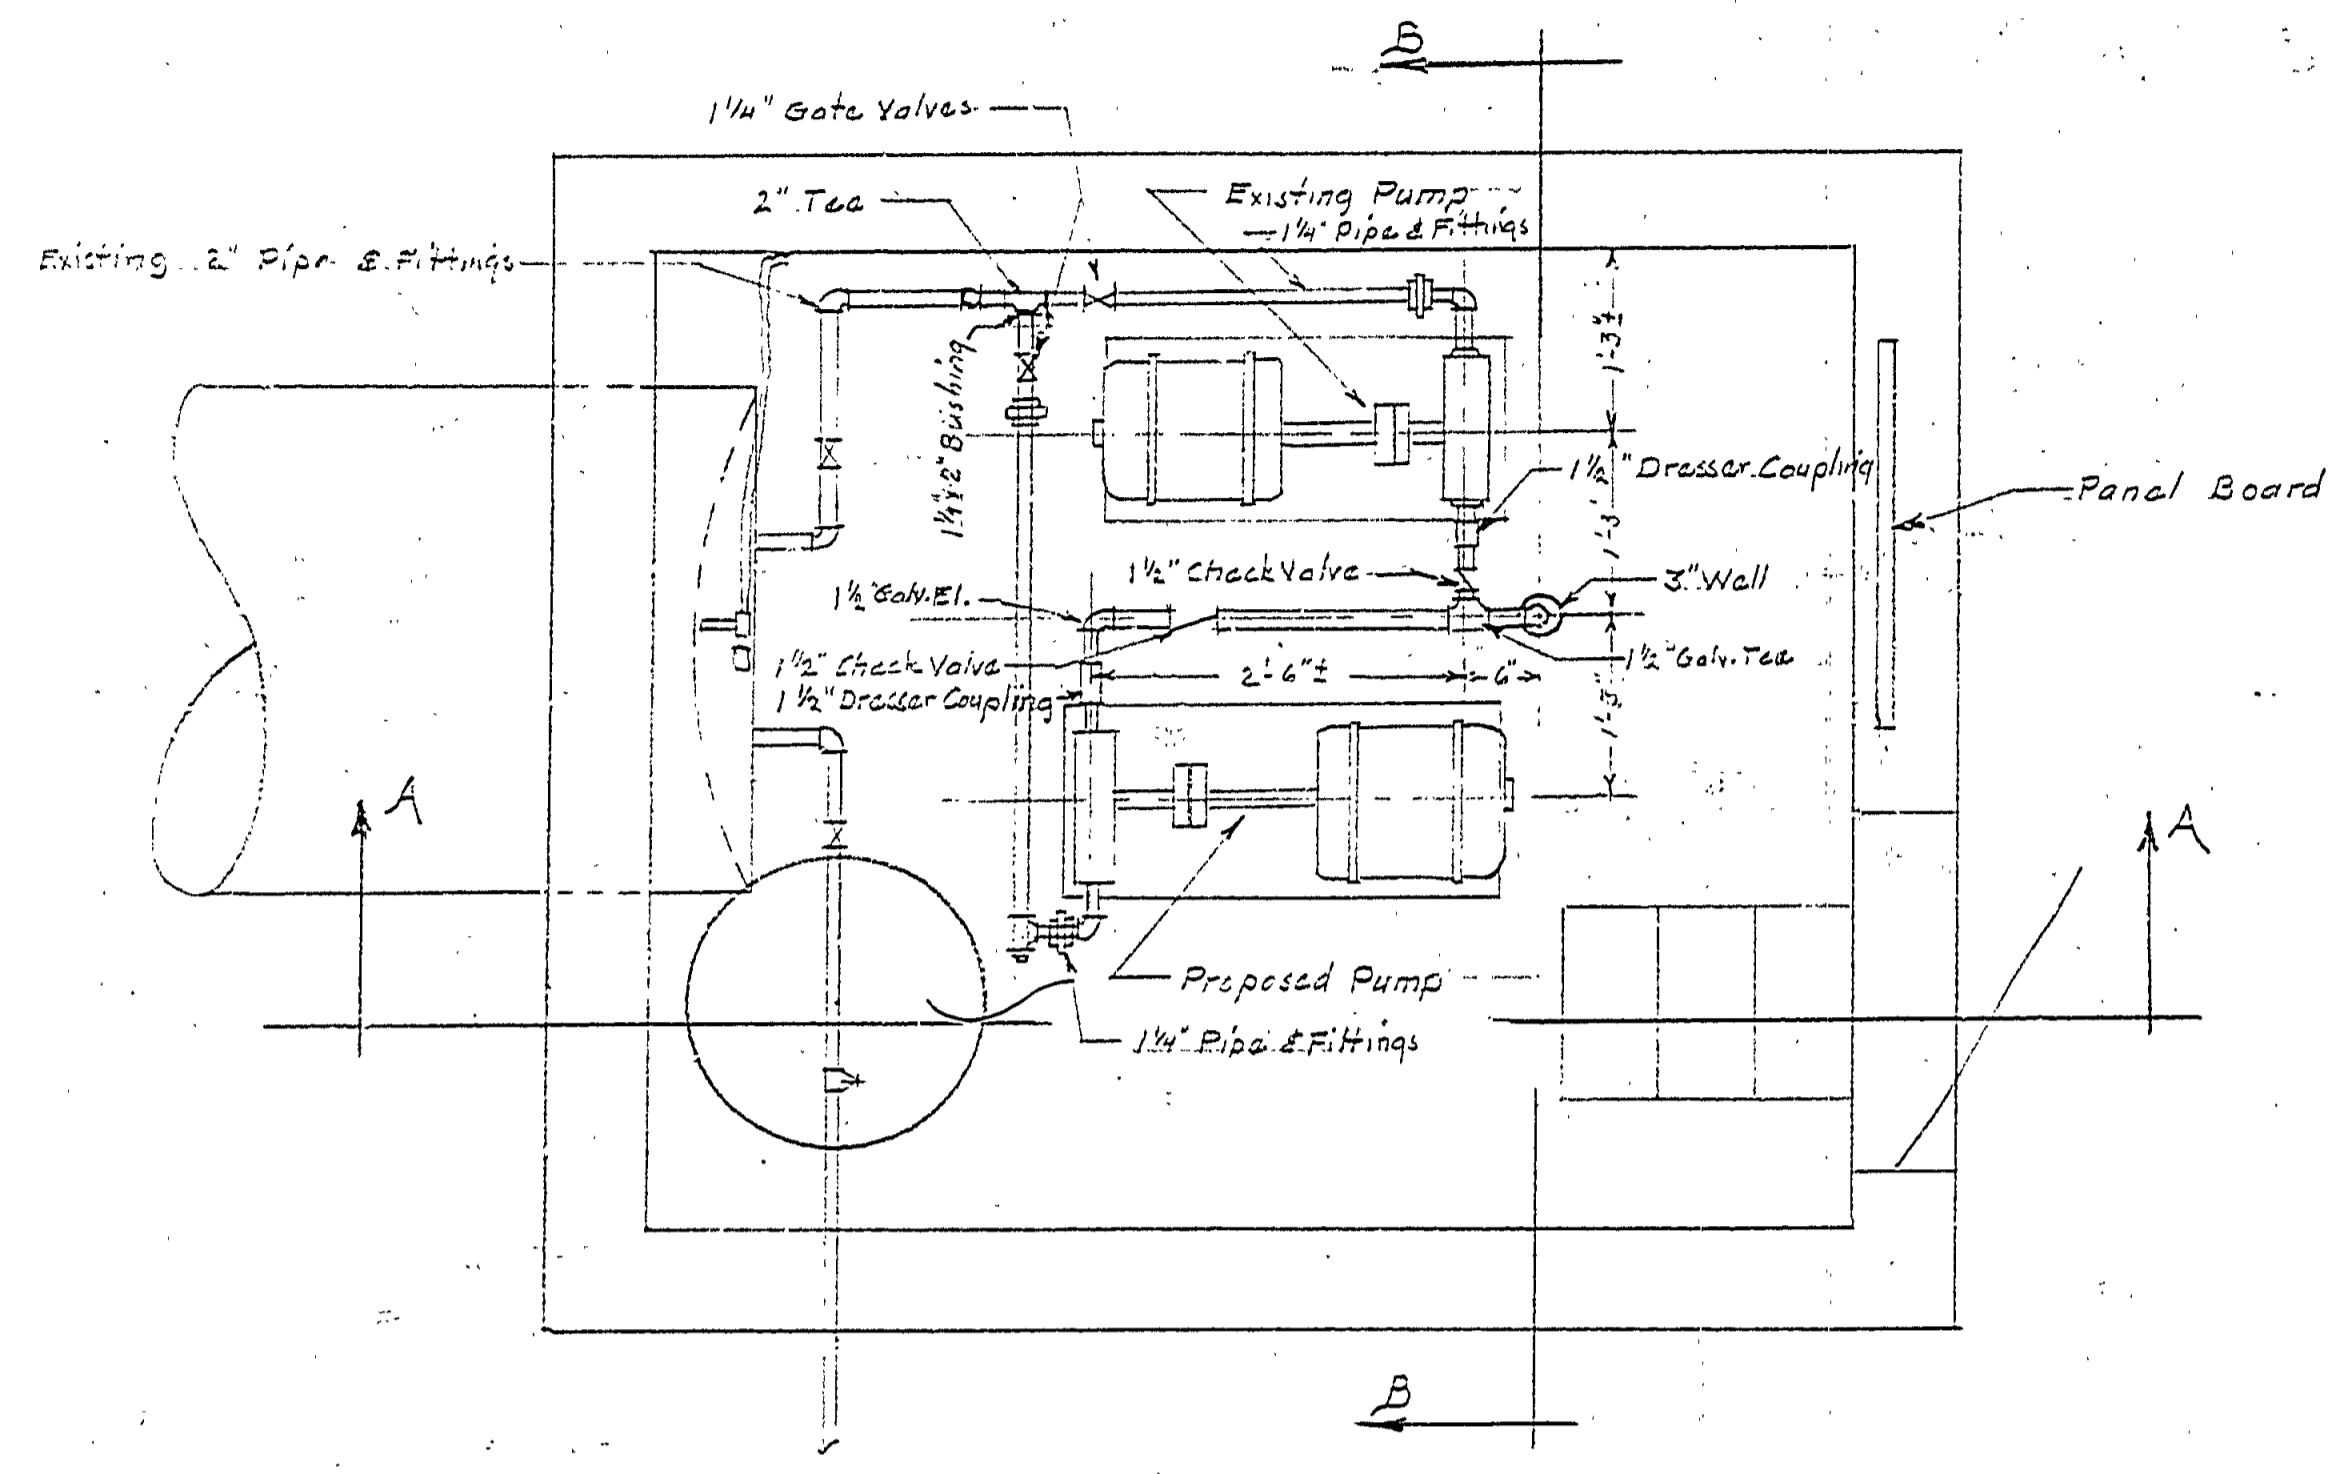 B
1 1/4" Gate Valves
2" Tee
Existing Pump
1 1/4" Pipe & Fittings
Existing 2" Pipe & Fittings
1'-3"±
1 1/4" x 2" Bushing
1 1/2" Dresser Coupling
Panel Board
1'-3"
1 1/2" Check Valve
3" Well
1 1/2" Galv. El.
1 1/2" Check Valve
2'-6"±
6"
1 1/2" Galv. Tee
1 1/2" Dresser Coupling
1'-3"
A
A
Proposed Pump
1 1/4" Pipe & Fittings
B